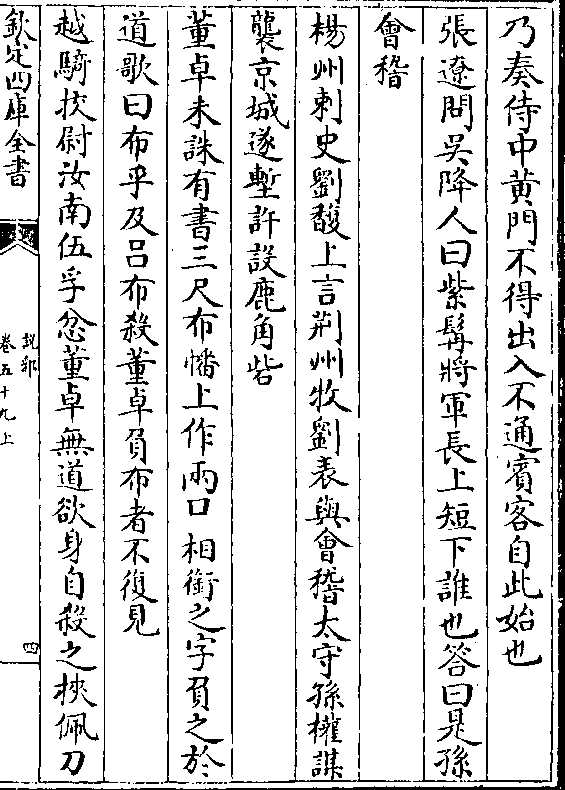 乃奏侍中黄門不得出入不通賓客自此始也
張遼問吳降人曰紫髯將軍長上短下誰也答曰是孫
會稽
楊州刺史劉馥上言荆州牧劉表與會稽太守孫權謀
襲京城遂塹許設鹿角砦
董卓未誅有書三尺布幡上作兩口相銜之字負之於
道歌曰布乎及吕布殺董卓負布者不復見
越騎挍尉汝南伍孚忿董卓無道欲身自殺之挾佩刀
欽定四庫全書
説郛
卷五十九上
四